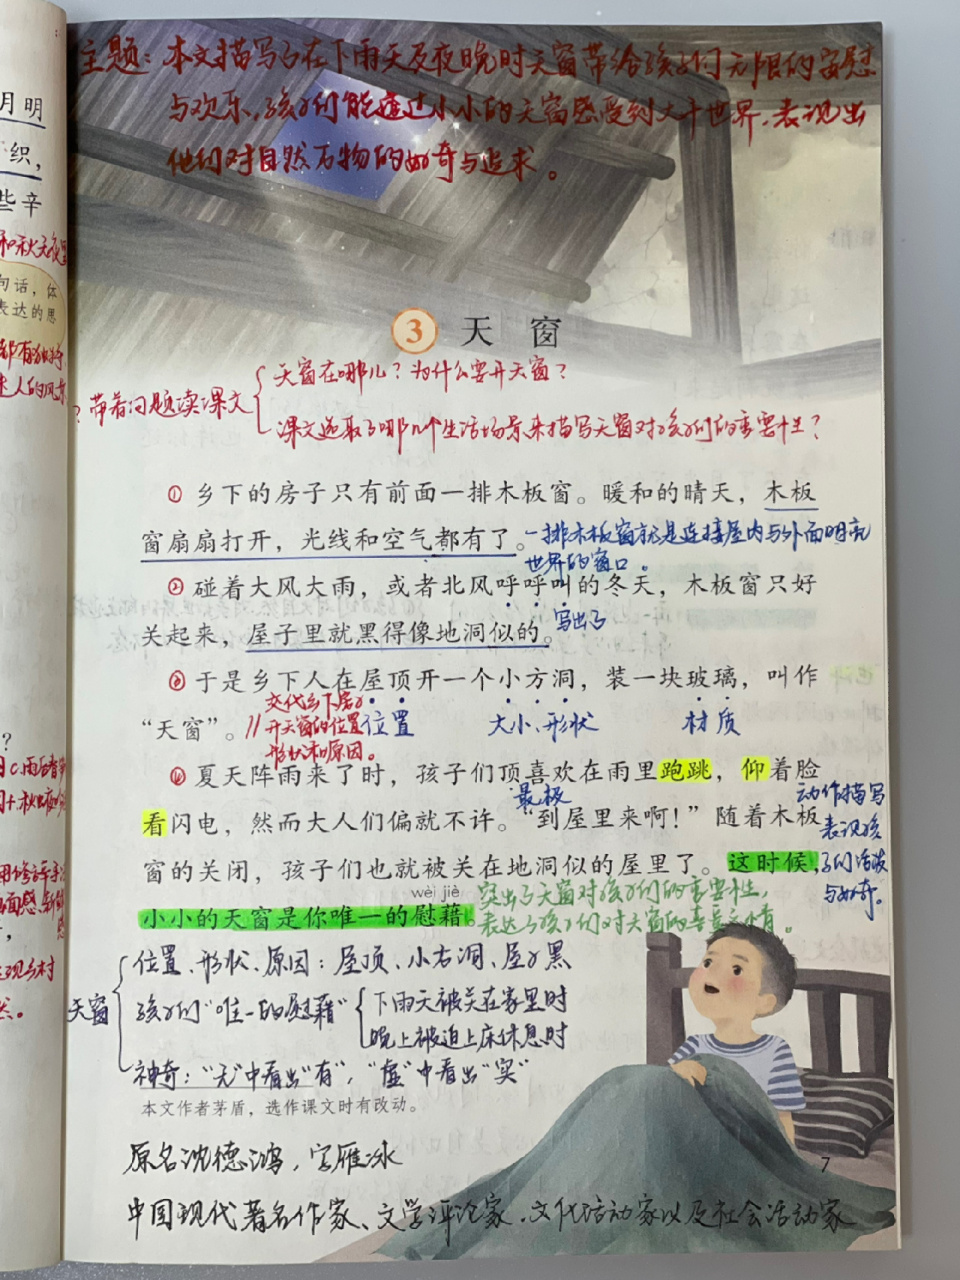 月明
织，
些辛
和秋天夜里
句话，体
表达的思
主题：本文描写了在下雨天及夜晚时天窗带给孩子们无限的安慰
与欢乐，孩子们能透过小小的天窗感受到大千世界，表现出
他们对自然万物的好奇与追求。
3 天窗
带着问题读课文
天窗在哪儿？为什么要开天窗？
课文选取了哪几个生活场景来描写天窗对孩子们的重要性？
① 乡下的房子只有前面一排木板窗。暖和的晴天，木板
窗扇扇打开，光线和空气都有了。
一排木板窗就是连接屋内与外面明亮
世界的窗口。
② 碰着大风大雨，或者北风呼呼叫的冬天，木板窗只好
关起来，屋子里就黑得像地洞似的。
写出了
③ 于是乡下人在屋顶开一个小方洞，装一块玻璃，叫作
“天窗”。
交代乡下房子
开天窗的位置
形状和原因。
位置 大小、形状 材质
④ 夏天阵雨来了时，孩子们顶喜欢在雨里跑跳，仰着脸
最、极
动作描写
看闪电，然而大人们偏就不许。“到屋里来啊！”随着木板
表现孩
窗的关闭，孩子们也就被关在地洞似的屋里了。这时候，
子们活泼
与好奇。
wèi jiè
小小的天窗是你唯一的慰藉。
突出了天窗对孩子们的重要性，
表达了孩子们对天窗的喜爱之情。
天窗
位置、形状、原因：屋顶、小方洞、屋子黑
孩子们“唯一的慰藉”
下雨天被关在家里时
晚上被迫上床休息时
神奇：“无”中看出“有”，“虚”中看出“实”
本文作者茅盾，选作课文时有改动。
原名沈德鸿，字雁冰
中国现代著名作家、文学评论家、文化活动家以及社会活动家
7